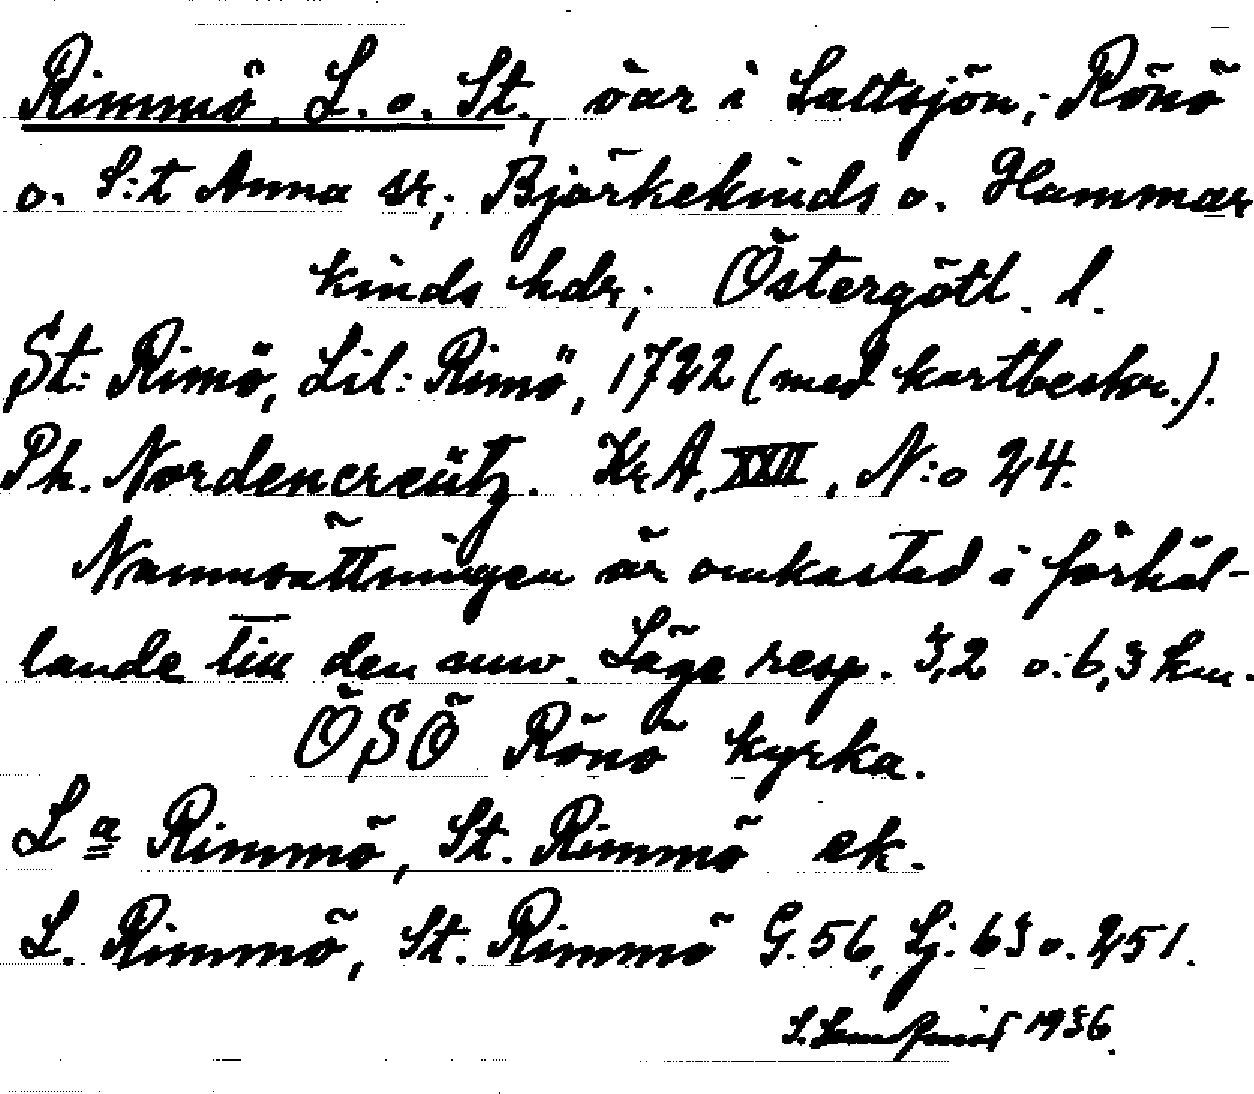 Rimmö, L. o. St., öar i Saltsjön; Rönö
o. S:t Anna sr; Björkekinds o. Hammar
kinds hdr; Östergötl. l.
St: Rimö, Lil: Rimö, 1722 (med kartbeskr.).
Ph. Nordencreütz. KrA, XXII, N:o 24.
Namnsättningen är omkastad i förhål-
lande till den nuv. Läge resp. 3,2 o. 6,3 km.
ÖSÖ Rönö kyrka.
La Rimmö, St. Rimmö ek.
L. Rimmö, St. Rimmö G. 56, Lj. 63 o. 251.
S. 1936.